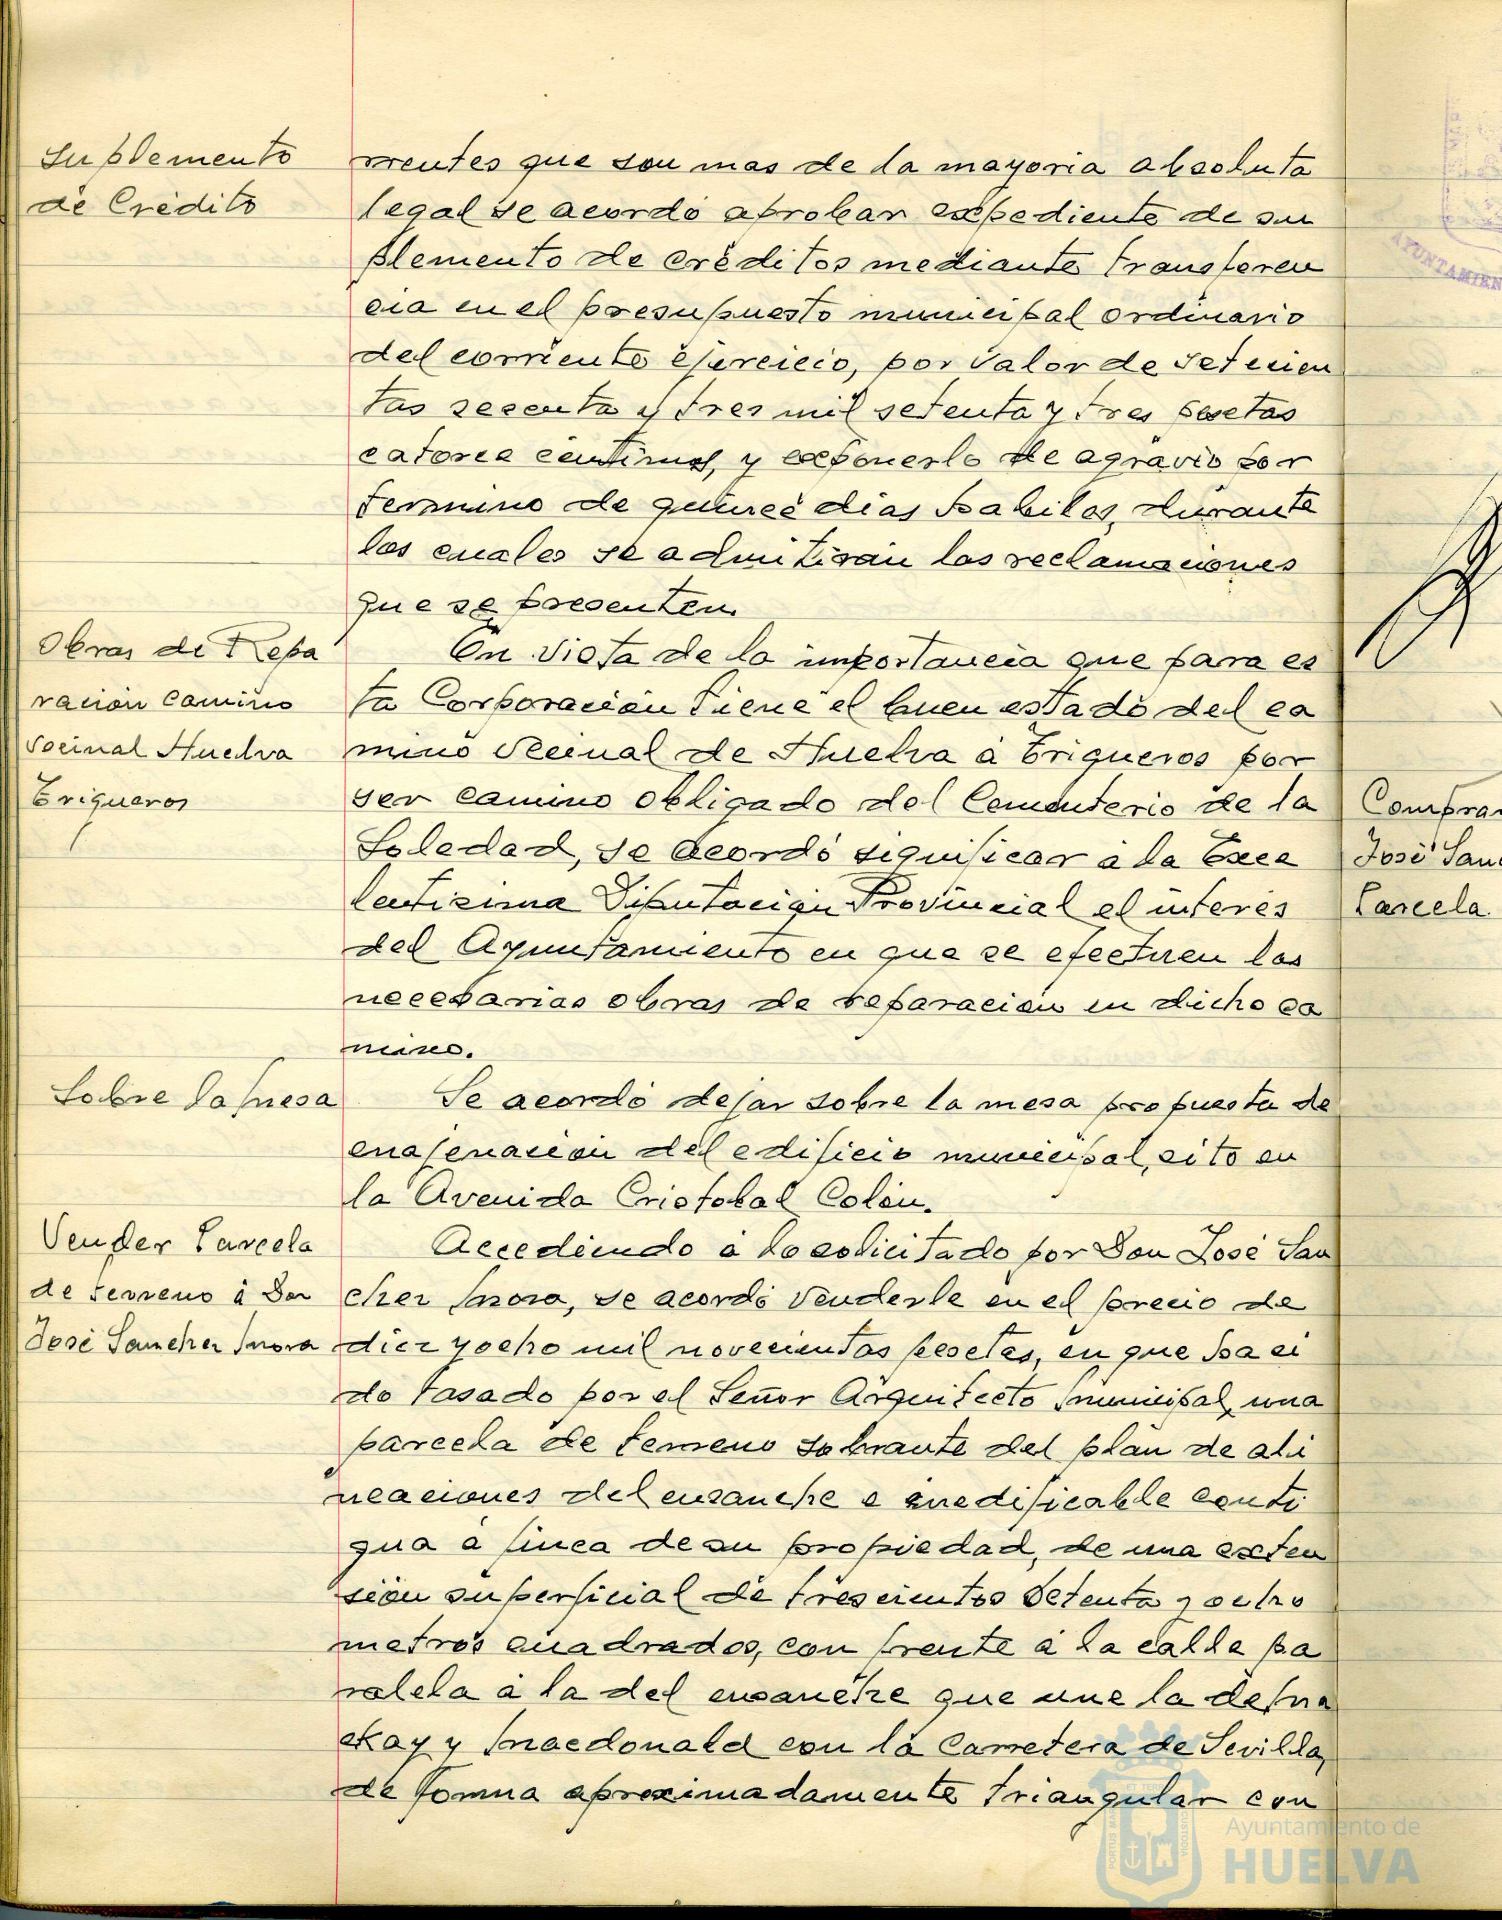 Suplemento
de Crédito
rrentes que son mas de la mayoria absoluta
legal se acordó aprobar expediente de su
plemento de créditos mediante transferen
cia en el presupuesto municipal ordinario
del corriente ejercicio, por valor de setecien
tas sesenta y tres mil setenta y tres pesetas
catorce centimos, y exponerlo de agravio por
termino de quince dias habiles, durante
los cuales se admitirán las reclamaciones
que se presenten.
Obras de Repa
ración camino
vecinal Huelva
Trigueros
En vista de la importancia que para es
ta Corporación tiene el buen estado del ca
mino vecinal de Huelva á Trigueros por
ser camino obligado del Cementerio de la
Soledad, se acordó significar á la Exce
lentisima Diputación Provincial el interés
del Ayuntamiento en que se efectuen las
necesarias obras de reparación en dicho ca
mino.
Sobre la mesa
Se acordó dejar sobre la mesa propuesta de
enajenación del edificio municipal, sito en
la Avenida Cristobal Colón.
Vender Parcela
de terreno á Don
José Sanchez Mora
Accediendo á lo solicitado por Don José San
chez Mora, se acordó venderle en el precio de
diez y ocho mil novecientas pesetas, en que ha si
do tasado por el Señor Arquitecto Municipal, una
parcela de terreno sobrante del plan de ali
neaciones del ensanche e inedificable conti
gua á finca de su propiedad, de una exten
sión superficial de trescientos setenta y ocho
metros cuadrados, con frente á la calle pa
ralela á la del ensanche que une la de Ma
ckay y Macdonald con la Carretera de Sevilla,
de forma aproximadamente triangular con
AYUNTAMIEN
Comprar
José San
Parcela.
Ayuntamiento de
HUELVA